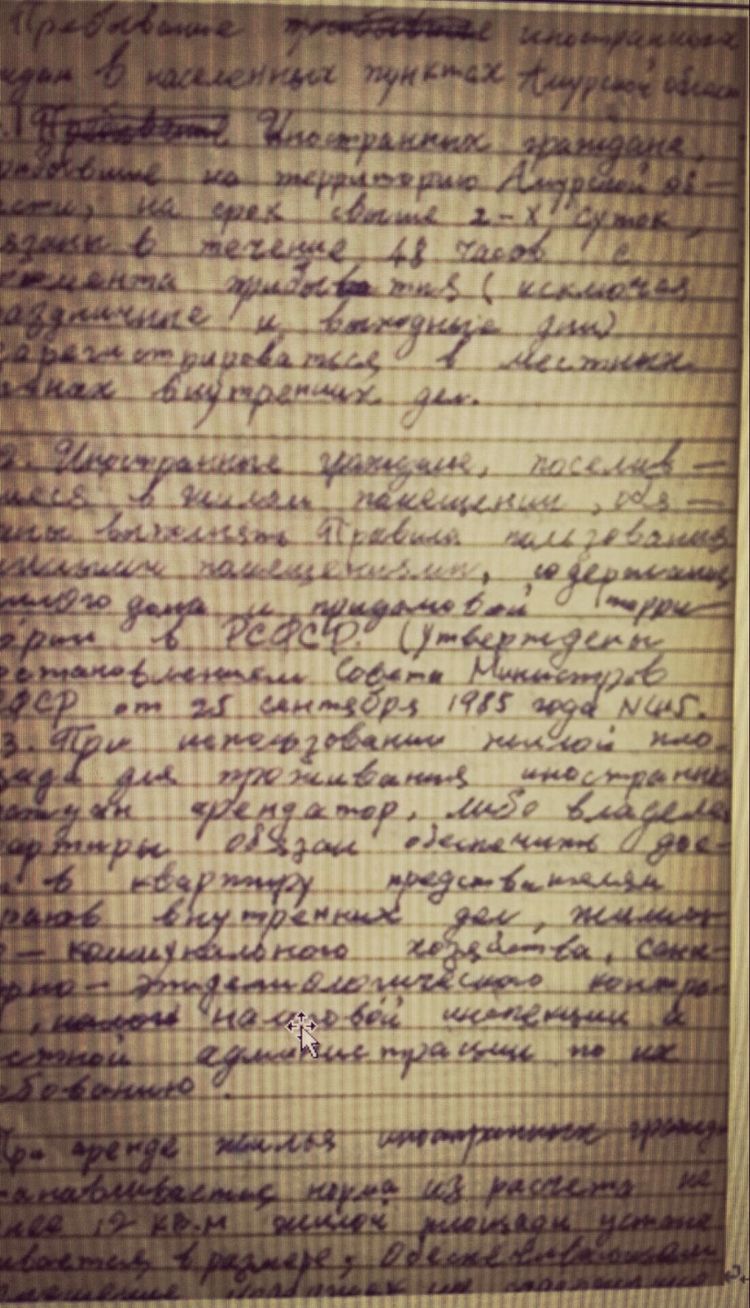 Пребывание иностранного
ждан в населенных пунктах Амурской област
1 Иностранных граждане,
рибывшие на территорию Амурской об-
асти, на срок свыше 2-х суток,
язаны в течение 48 часов с
омента прибытия (исключая
аздничные и выходные дни)
зарегистрироваться в местных
ганах внутренних дел.
Иностранные граждане, поселив-
шиеся в жилом помещении, обя-
аны выполнять Правила пользования
помещениями, содержания
илого дома и придомовой терри-
ории в РСФСР. (Утверждены
остановлением Совета Министров
ФСР от 25 сентября 1985 года N
3. При использовании жилой пло-
щади для проживания иностранны
раждан арендатор, либо владеле
артиры обязан обеспечить дос-
в квартиру представителям
рганов внутренних дел, жилищ-
о-коммунального хозяйства, сани-
арно-эпидемиологического контро-
налоговой инспекции и
естной администрации по их
ебованию.
При аренде жилья иностранных гражд
танавливается норма из расчета не
енее 12 кв.м жилой площади устана
ивается в размере,